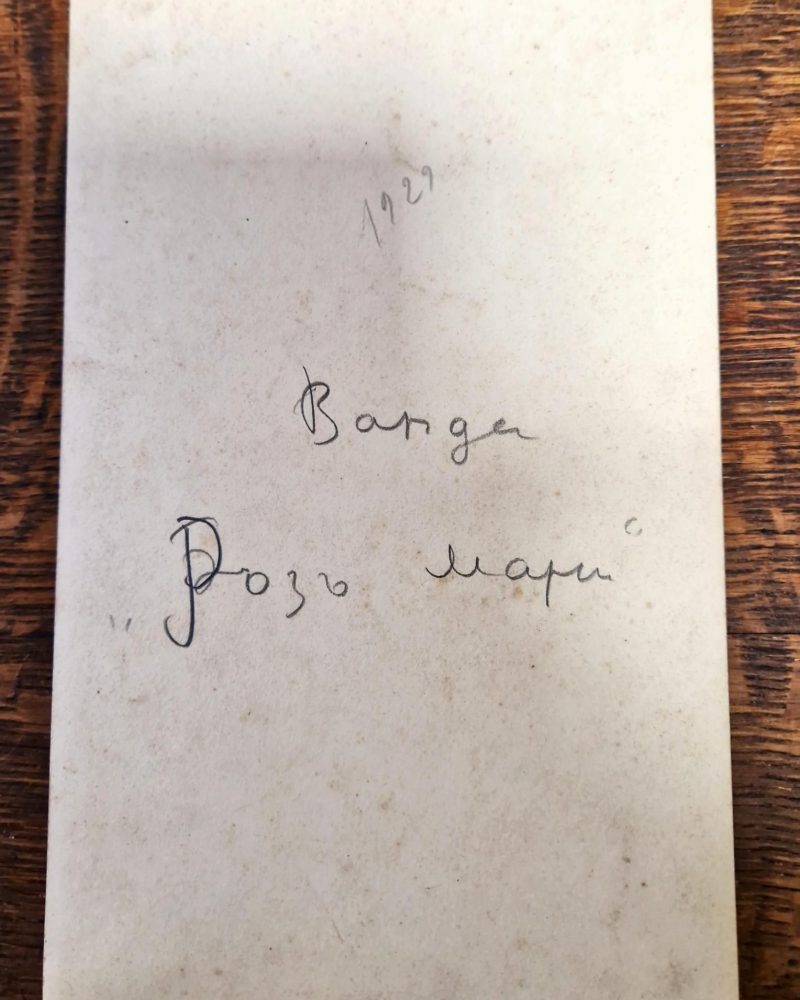 1929
Ванда
„Розъ Мари“